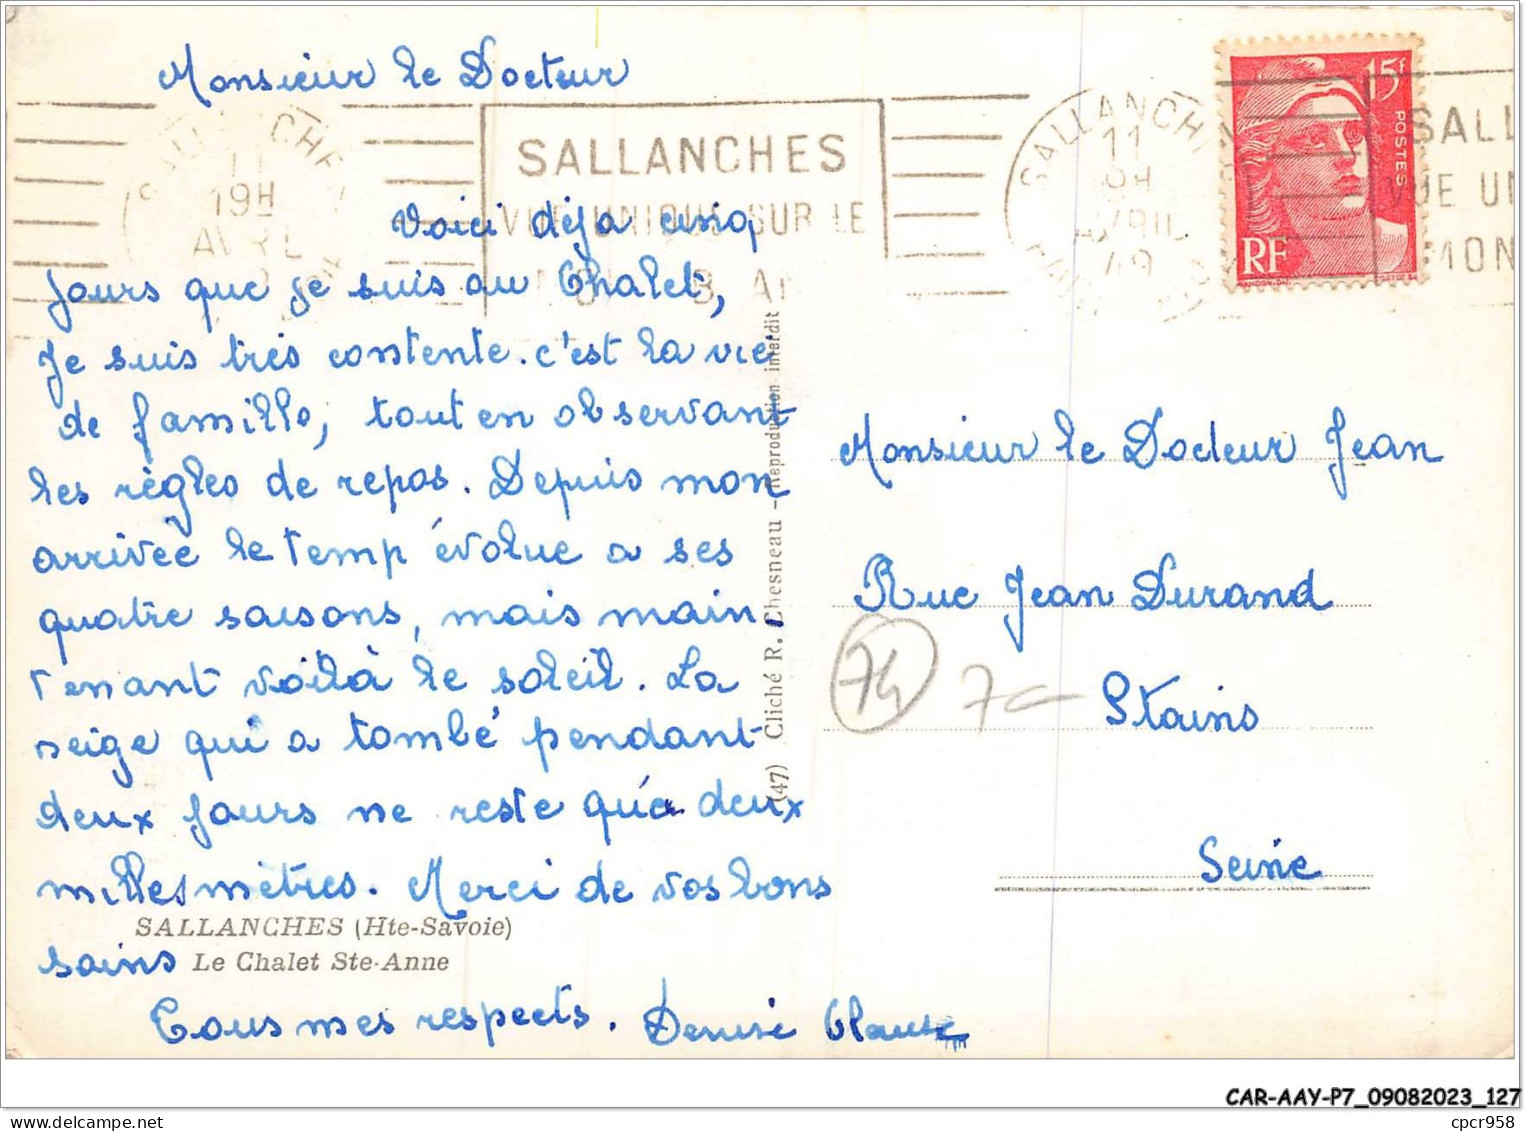 Monsieur le Docteur
SALLANCHES
19H
AVRIL
SALLANCHES
VUE UNIQUE SUR LE
SALLANCHES
11
AVRIL
49
15f
POSTES
RF
SALL
VUE UN
MON
Voici déja cinq
jours que je suis au Chalet,
Je suis très contente. c'est la vie
de famille, tout en observant
les règles de repos. Depuis mon
arrivée le temp évolue a ses
quatre saisons, mais main
tenant voilà le soleil. La
neige qui a tombé pendant
deux jours ne reste qu'a deux
milles mètres. Merci de vos bons
soins
Tous mes respects. Denise Clause
SALLANCHES (Hte-Savoie)
Le Chalet Ste-Anne
(47) Cliché R. Chesneau - Reproduction interdit
Monsieur le Docteur Jean
Rue Jean Durand
74 7
Stains
Seine
CAR-AAY-P7_09082023_127
cpcr958